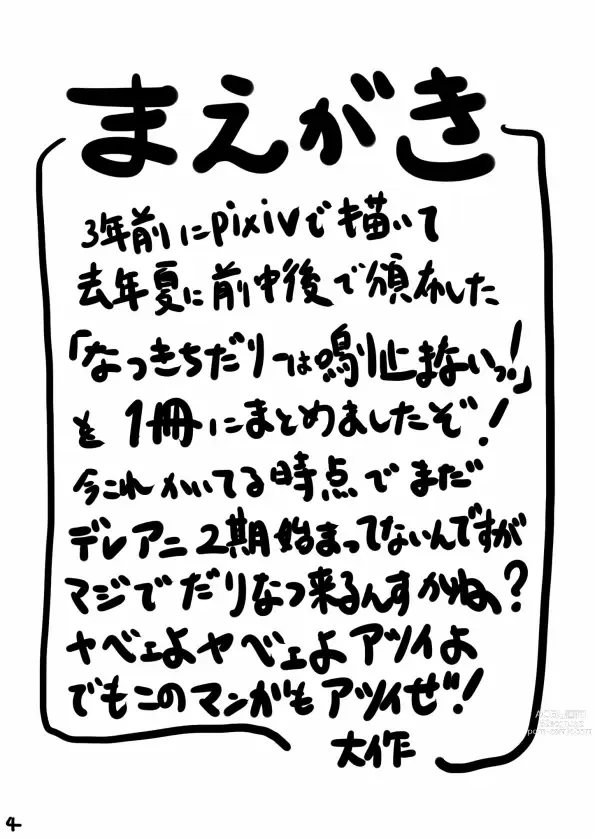 まえがき
3年前にpixivで描いて
去年夏に前中後で頒布した
「なつきちだりーは鳴り止まないっ!」
を1冊にまとめましたぞ!
今これかいてる時点でまだ
デレアニ2期始まってないんですが
マジでだりなつ来るんすかね、?
ヤベェよヤベェよアツイよ
でもこのマンガもアツイぜ!
大作
4